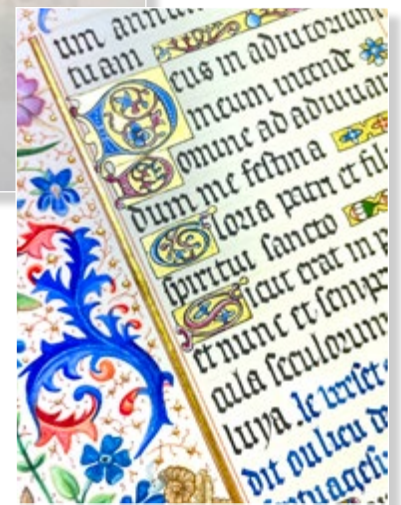 um annun
tuam
Deus in adiutorium
meum intende
Domine ad adiuuan
dum me festina
Gloria patri et fili
spiritui sancto
Sicut erat in p
et nunc et semp
cula seculorum
luya . le verset
dit ou lieu de